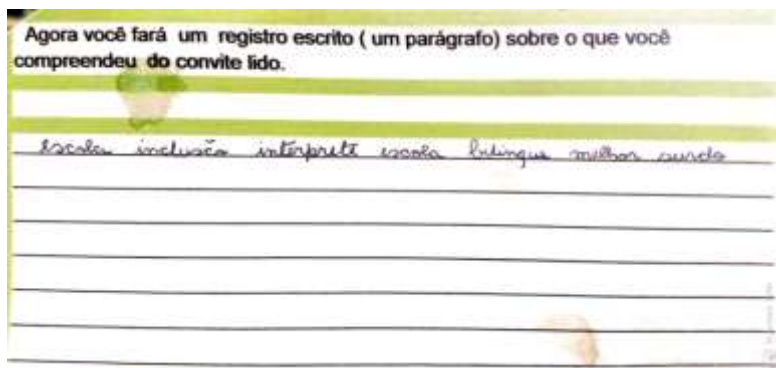 Agora você fará um registro escrito ( um parágrafo) sobre o que você
compreendeu do convite lido.
escola inclusão intérprete escola bilingue melhor surdo